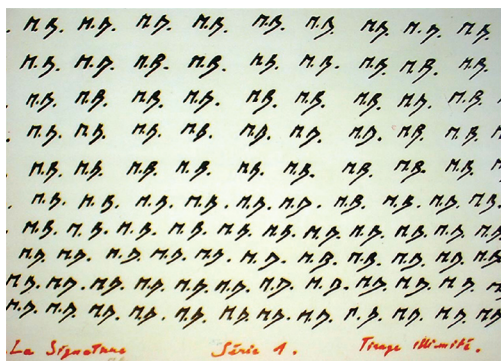 M.B. M.B. M.B. M.B. M.B. M.B. M.B. M.B. M.B.
M.B. M.B. M.B. M.B. M.B. M.B. M.B. M.B. M.B.
M.B. M.B. M.B. M.B. M.B. M.B. M.B. M.B. M.B.
M.B. M.B. M.B. M.B. M.B. M.B. M.B. M.B. M.B.
M.B. M.B. M.B. M.B. M.B. M.B. M.B. M.B. M.B.
M.B. M.B. M.B. M.B. M.B. M.B. M.B. M.B. M.B. M.B.
M.B. M.B. M.B. M.B. M.B. M.B. M.B. M.B. M.B. M.B. M.B.
M.B. M.B. M.B. M.B. M.B. M.B. M.B. M.B. M.B. M.B. M.B.
M.B. M.B. M.B. M.B. M.B. M.B. M.B. M.B. M.B. M.B. M.B.
M.B. M.B. M.B. M.B. M.B. M.B. M.B. M.B. M.B. M.B. M.B. M.B.
La Signature Série 1. Tirage illimité.